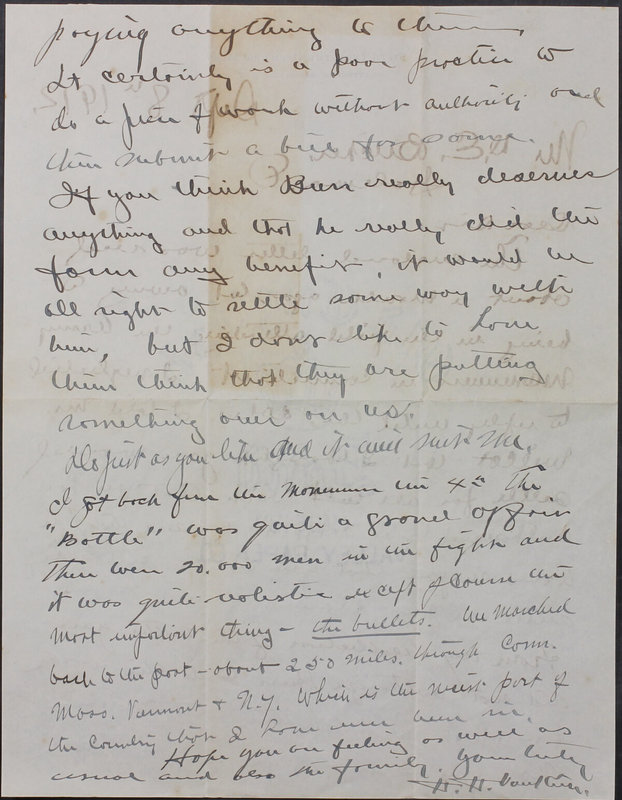 paying anything to them,
It certainly is a poor practice to
do a piece of work without authority and
then submit a bill for same.
If you think Burr really deserves
anything and that he really did the
farm any benefit, it would be
all right to settle some way with
him, but I dont like to have
them think that they are putting
something over on us.
Do just as you like and it will suit me.
I got back from the Maneuvers the 4th The
"Battle" was quite a grand affair
There were 20.000 men in the fight and
it was quite realistic except of course the
most important thing - the bullets. We marched
back to the post - about 250 miles. through Conn.
Mass. Vermont & N.Y. Which is the nicest part of
the country that I have ever been in.
Hope you are feeling as well as
usual and also the family. Yours truly
H. H.